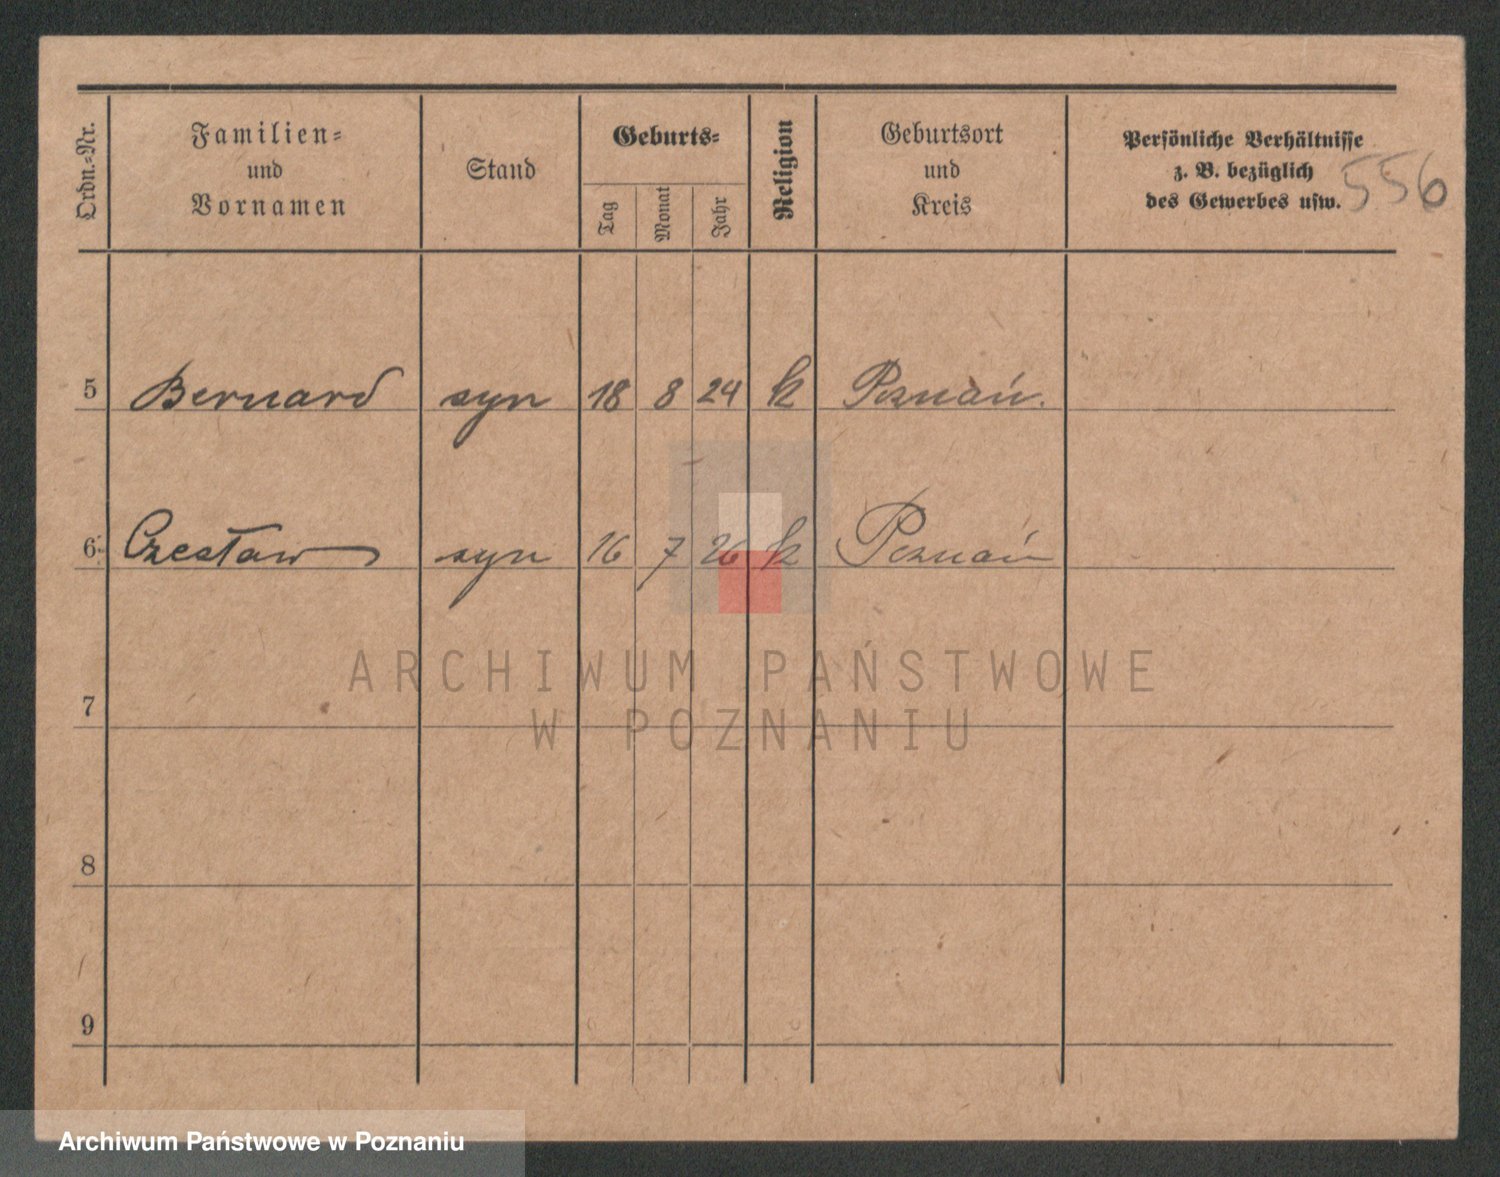 Ordn.-Nr.
Familien-
und
Vornamen
Stand
Geburts-
Tag
Monat
Jahr
Religion
Geburtsort
und
Kreis
Persönliche Verhältnisse
z. B. bezüglich
des Gewerbes usw.
556
5 Bernard syn 18 8 24 k Poznań.
6 Czesław syn 16 7 26 k Poznań
7
8
9
ARCHIWUM PAŃSTWOWE
W POZNANIU
Archiwum Państwowe w Poznaniu